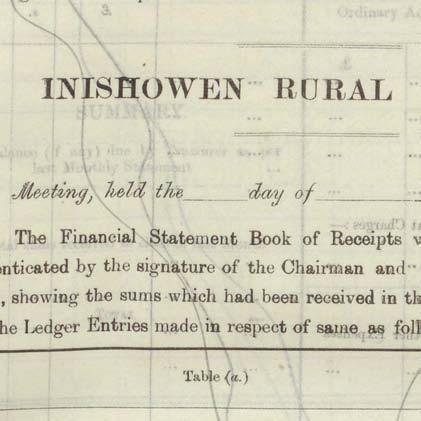 3.
Ordinary
£
INISHOWEN RURAL
SUMMARY.
(if any) due by Treasurer as per
last Monthly Statement
Meeting, held the day of
The Financial Statement Book of Receipts
enticated by the signature of the Chairman and
, showing the sums which had been received in th
he Ledger Entries made in respect of same as foll
Table (a.)